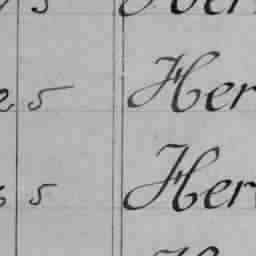 5 Her
2 5 Her
5 Her